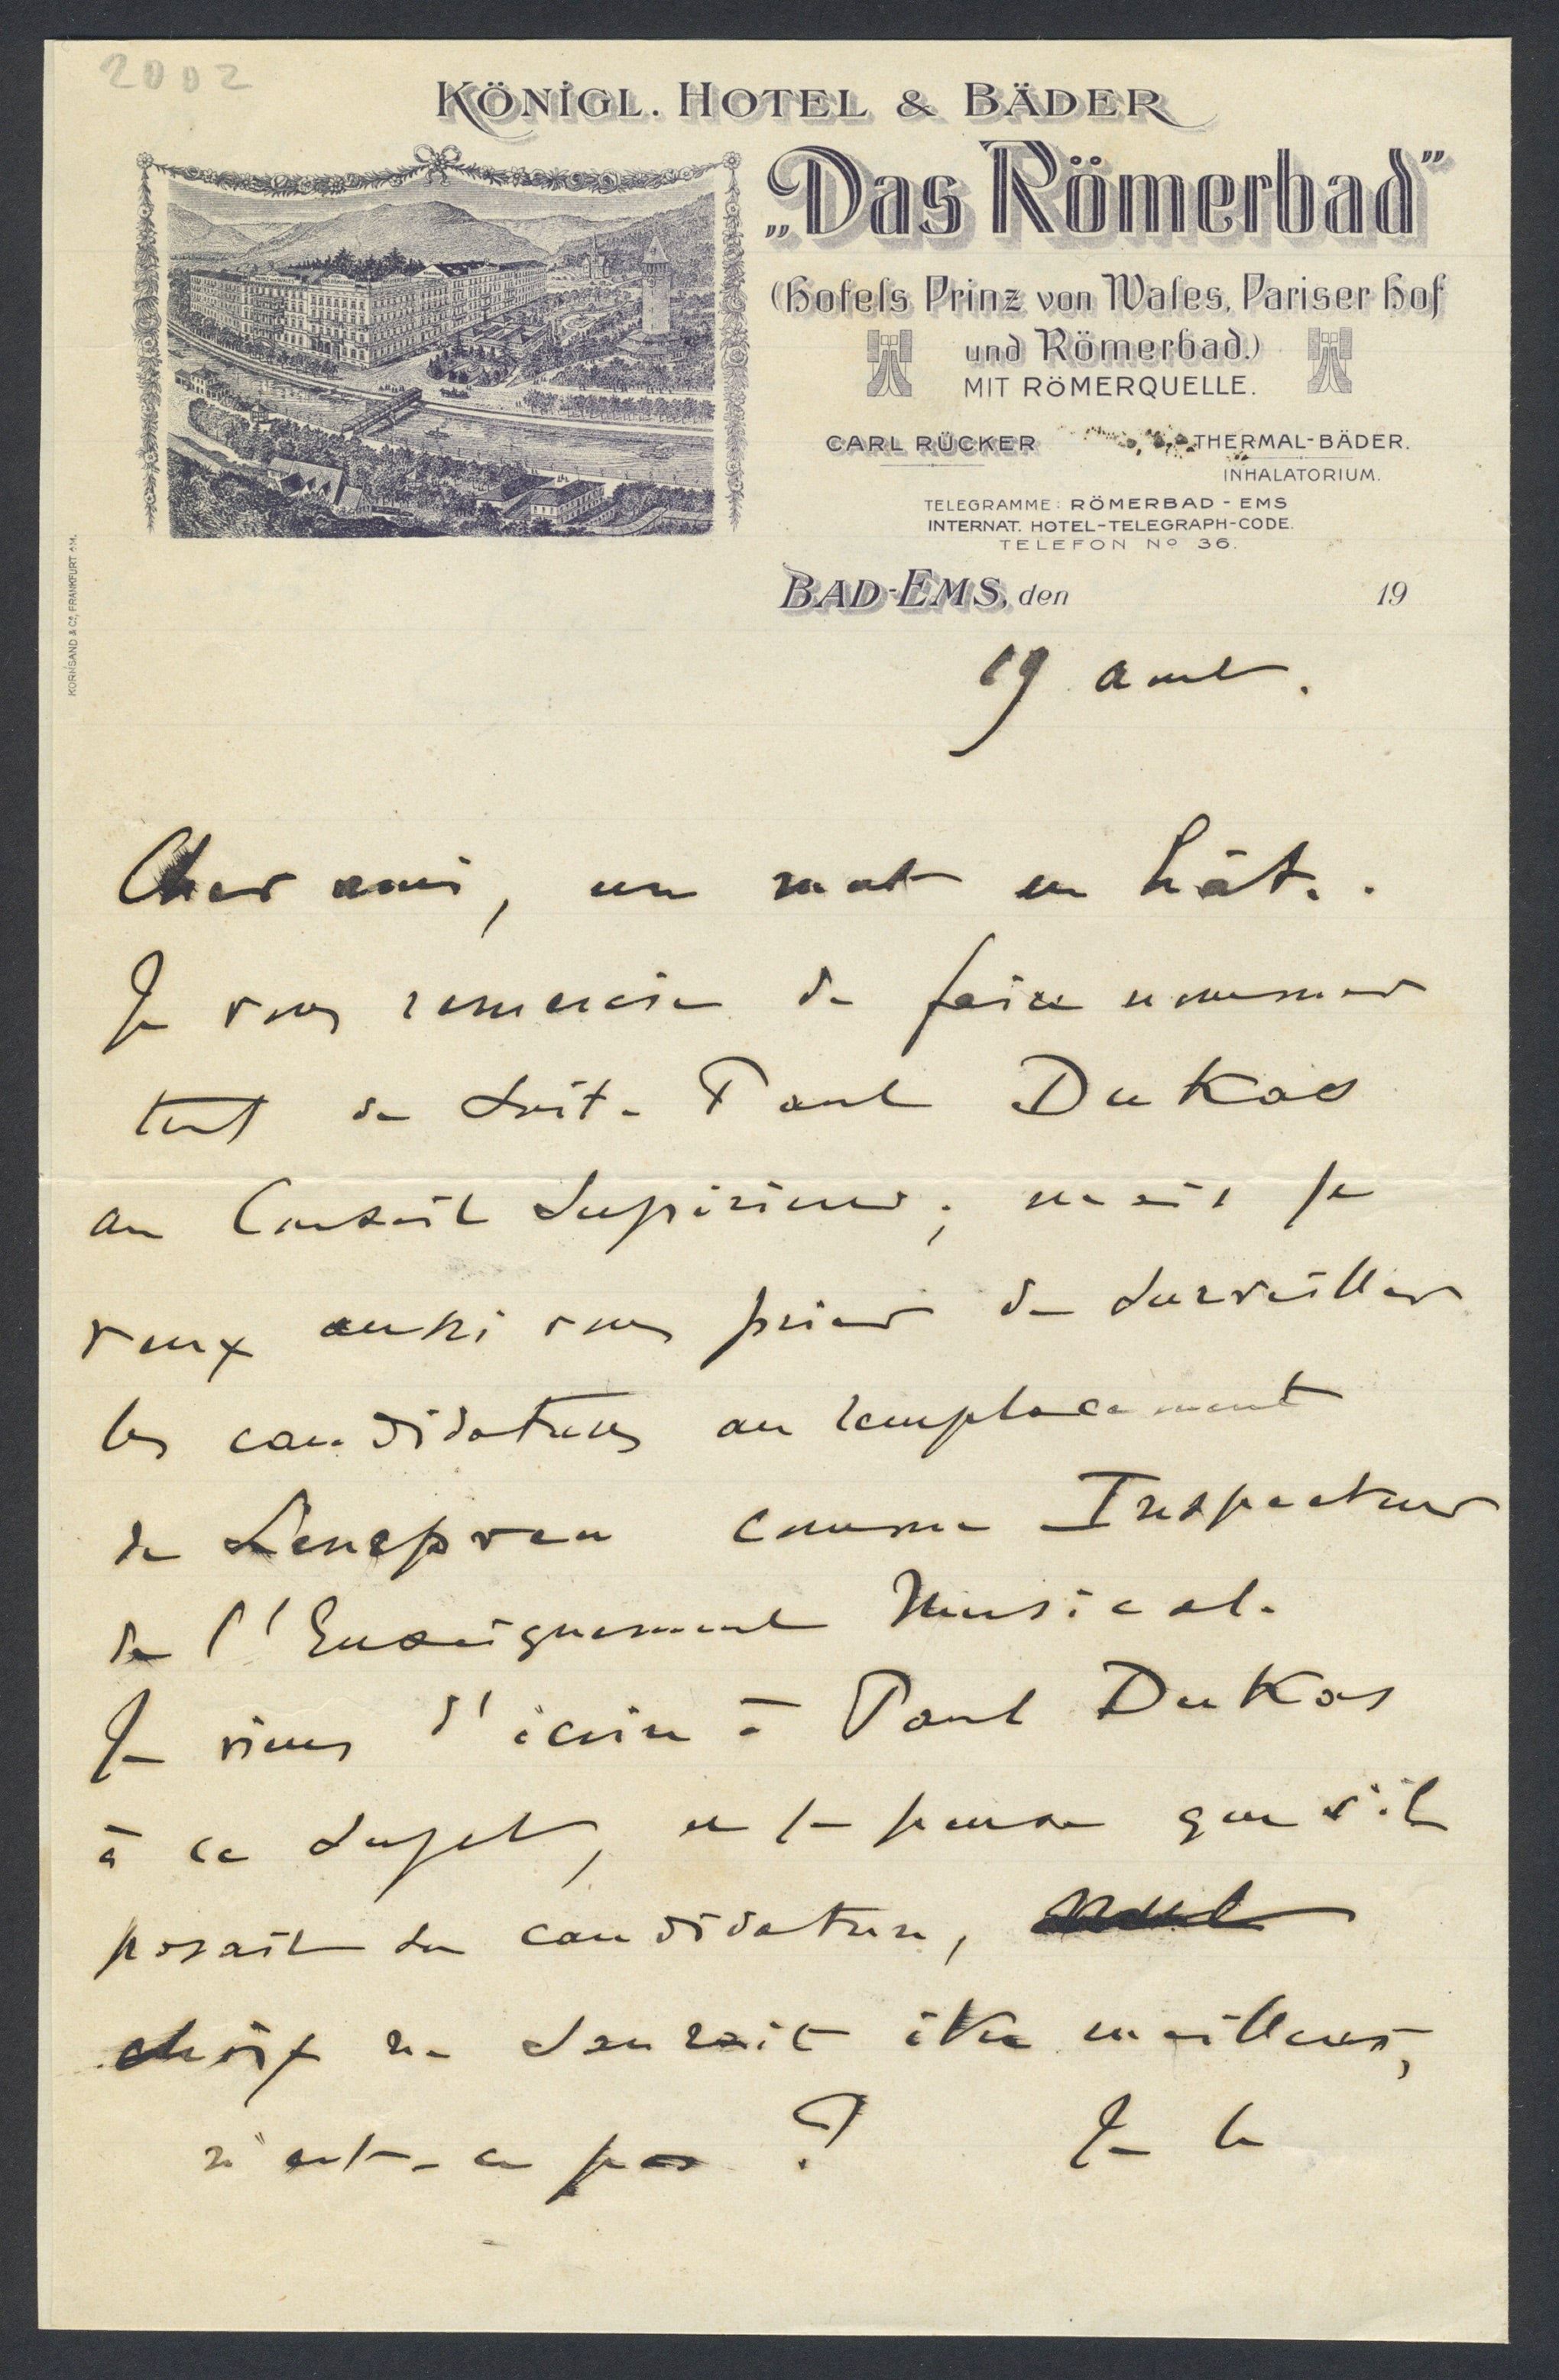 2002
KÖNIGL. HOTEL & BÄDER
„Das Römerbad”
(Hotels Prinz von Wales, Pariser Hof
und Römerbad.)
MIT RÖMERQUELLE.
CARL RÜCKER THERMAL-BÄDER.
INHALATORIUM.
TELEGRAMME: RÖMERBAD - EMS
INTERNAT. HOTEL-TELEGRAPH-CODE.
TELEFON No 36.
BAD-EMS, den 19
KORNSAND & Co, FRANKFURT A/M.
19 aout.
Cher ami, un mot en hâte.
Je vous remercie de faire nommer
tout de suite Paul Dukas
au Conseil Supérieur ; mais je
veux aussi vous prier de surveiller
les candidatures au remplacement
de Lenepveu comme Inspecteur
de l'Enseignement Musical.
Je viens d'écrire à Paul Dukas
à ce sujet, et je pense que s'il
posait sa candidature,
choix ne saurait être meilleur,
n'est-ce pas ? Je le